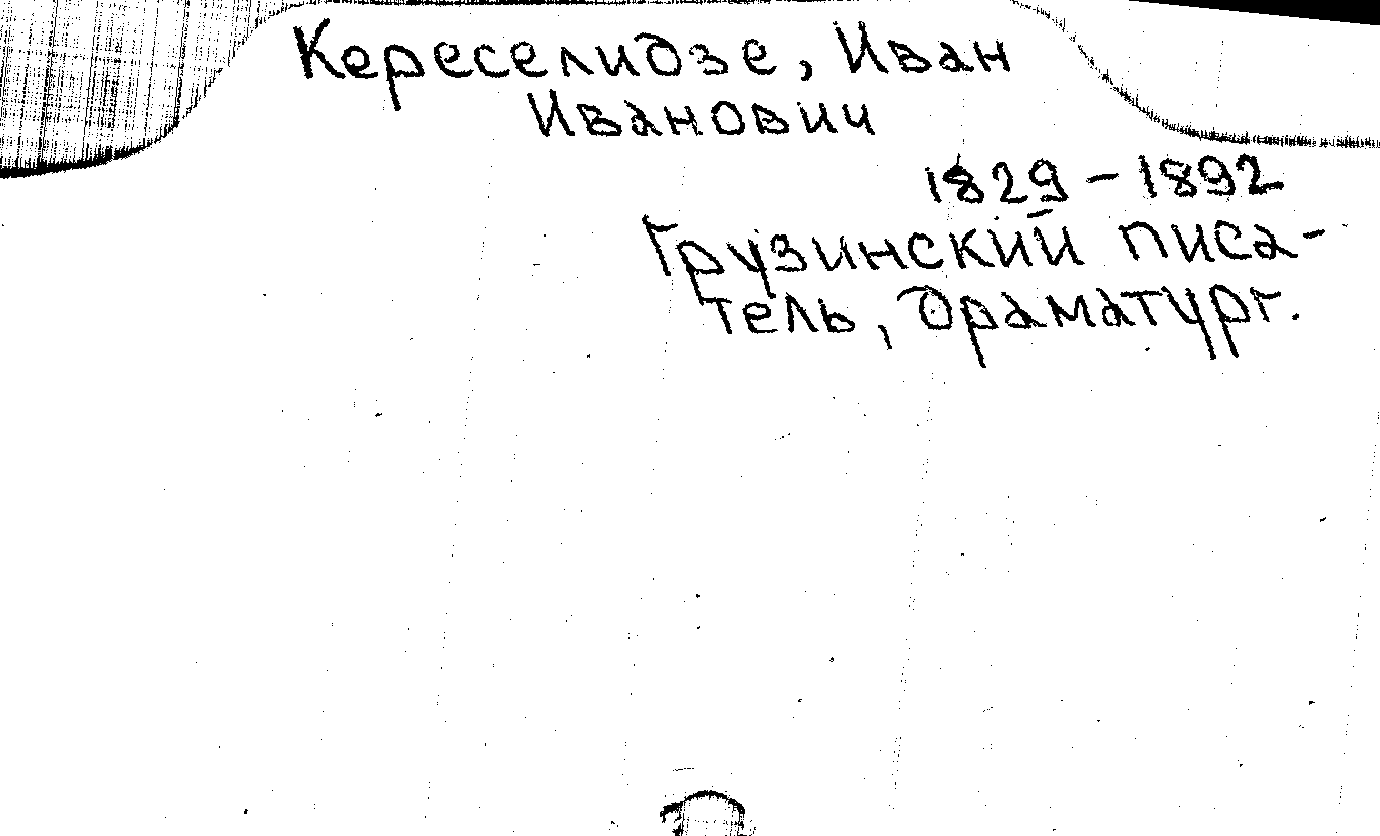 Кереселидзе, Иван
Иванович
1829-1892
Грузинский писа-
тель, драматург.